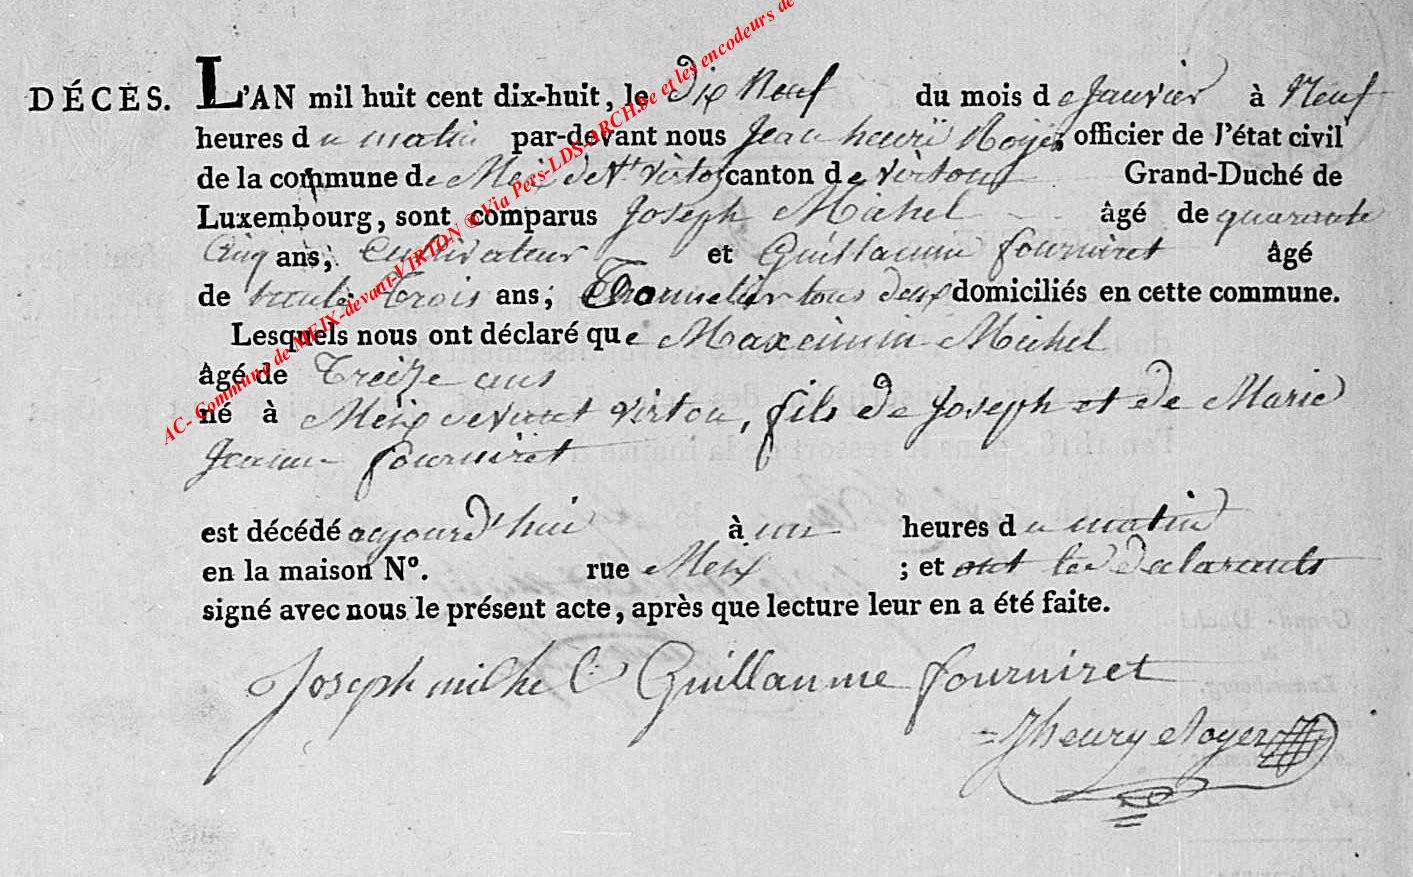 DÉCÈS. L'AN mil huit cent dix-huit, le dix Neuf du mois de Janvier à Neuf
heures du matin par-devant nous Jean henri Noyer, officier de l'état civil
de la commune de Meix devt virton canton de virton Grand-Duché de
Luxembourg, sont comparus Joseph Michel âgé de quarante
Cinq ans, Cultivateur et Guillaume fourniret âgé
de trente Trois ans; tous deux domiciliés en cette commune.
Lesquels nous ont déclaré que Maximin Michel
âgé de Treize ans
né à Meix devant virton, fils de Joseph et de Marie
Jeanne fourniret
est décédé aujourd'hui à un heures du matin
en la maison N°. rue Meix ; et ont les
signé avec nous le présent acte, après que lecture leur en a été faite.
Joseph milhel Guillaume fourniret
Jhenry Noyer
AC- Commune de MEIX-devant-VIRTON ® Via Pers-LDS-ARCH.be et les encodeurs de